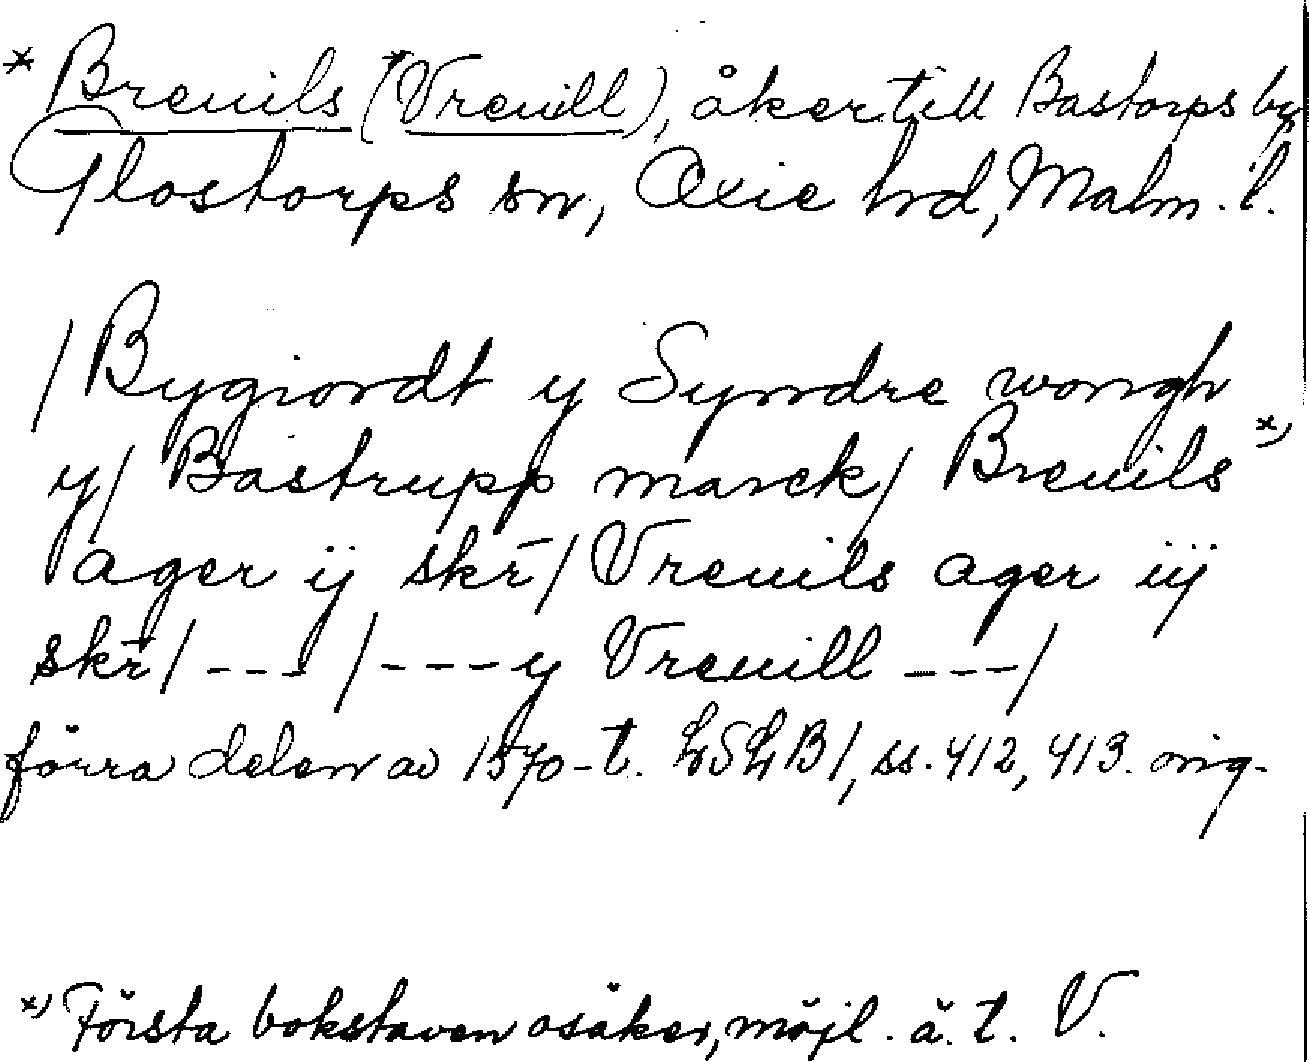 * Breuils (*Vreuill), åker till Bastorps by
Glostorps sn, Oxie hd, Malm. l.
/Bygiordt y Syndre wongh
y/ Bastrupp marck/ Breuils x)
ager ij skr̄/ Vreuils ager iij
skr̄/ --- / --- y Vreuill ---/
förra delen av 1570-t. LSLB1, ss. 412, 413. orig.
x) Första bokstaven osäker, möjl. ä. t. V.